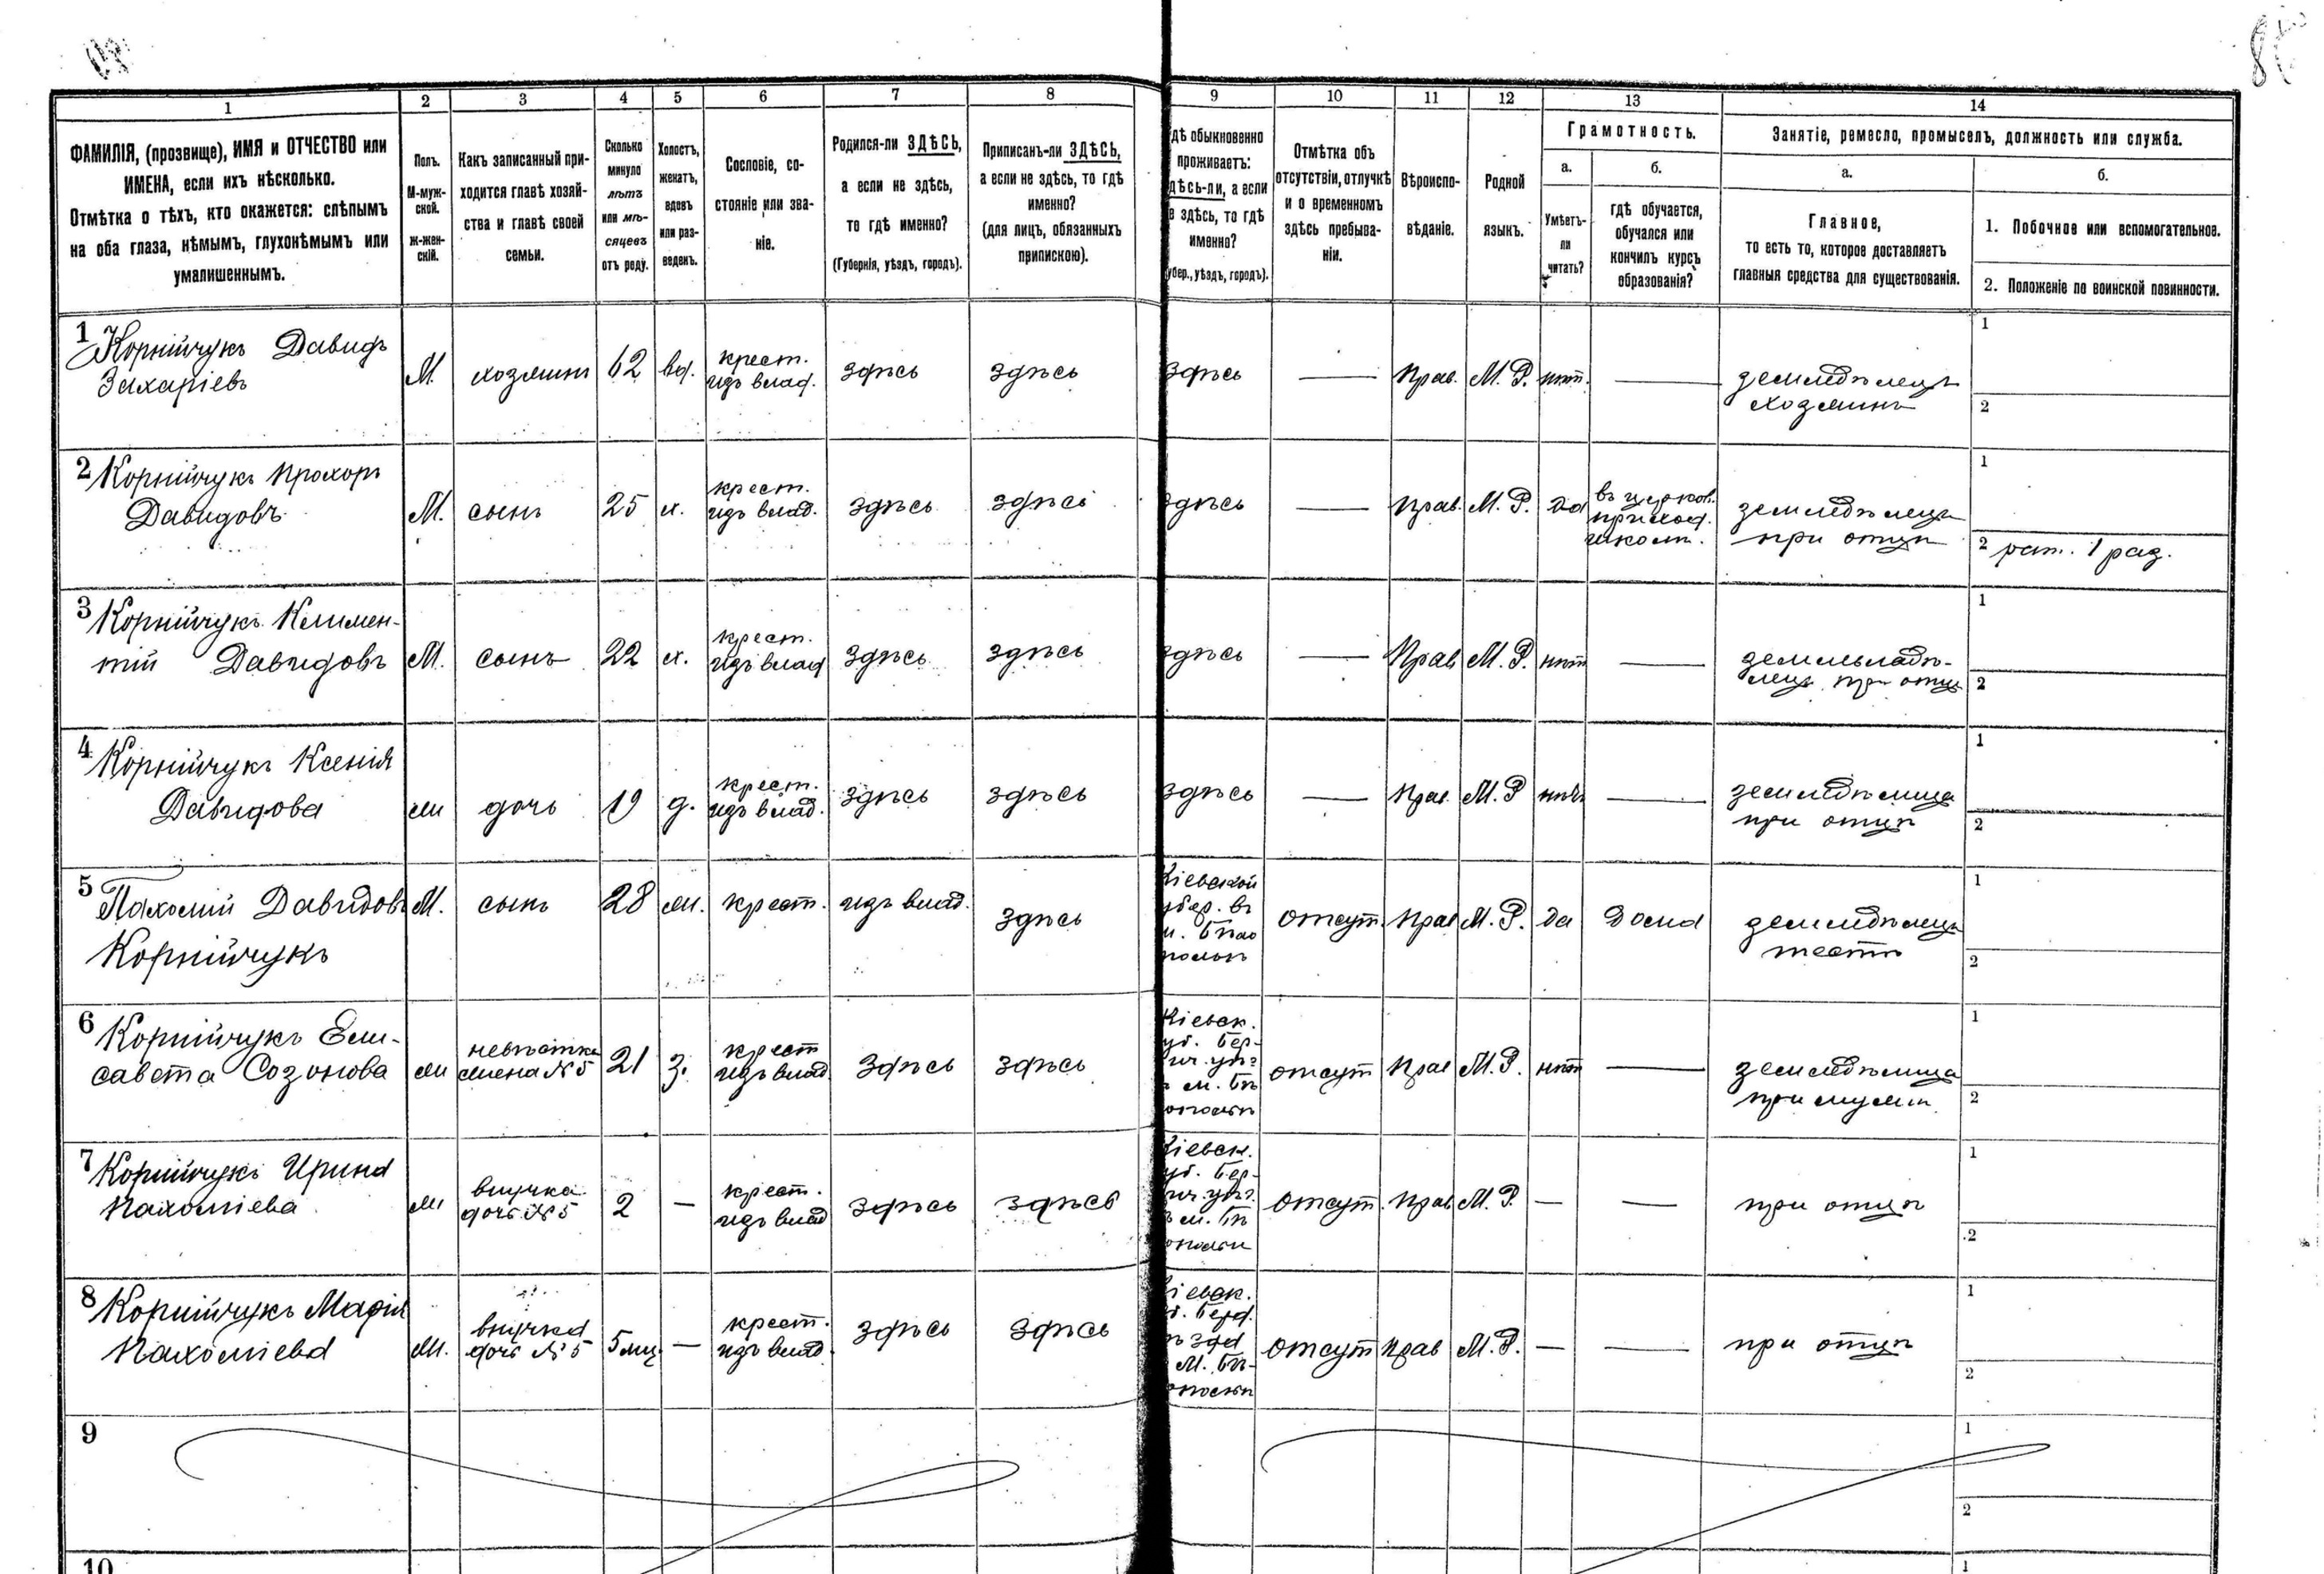 1 2 3 4 5 6 7 8 9 10 11 12 13 14
ФАМИЛІЯ, (прозвище), ИМЯ и ОТЧЕСТВО или
ИМЕНА, если ихъ нѣсколько.
Отмѣтка о тѣхъ, кто окажется: слѣпымъ
на оба глаза, нѣмымъ, глухонѣмымъ или
умалишеннымъ.
Полъ.
М-муж-
ской.
Ж-жен-
скій.
Какъ записанный при-
ходится главѣ хозяй-
ства и главѣ своей
семьи.
Сколько
минуло
лѣтъ
или мѣ-
сяцевъ
отъ роду.
Холостъ,
женатъ,
вдовъ
или раз-
веденъ.
Сословіе, со-
стояніе или зва-
ніе.
Родился-ли ЗДѢСЬ,
а если не здѣсь,
то гдѣ именно?
(Губернія, уѣздъ, городъ).
Приписанъ-ли ЗДѢСЬ,
а если не здѣсь, то гдѣ
именно?
(для лицъ, обязанныхъ
припискою).
дѣ обыкновенно
проживаетъ:
дѣсь-ли, а если
е здѣсь, то гдѣ
именно?
убер., уѣздъ, городъ).
Отмѣтка объ
отсутствіи, отлучкѣ
и о временномъ
здѣсь пребыва-
ніи.
Вѣроиспо-
вѣданіе.
Родной
языкъ.
Грамотность.
а.
Умѣетъ-
ли
читать?
б.
гдѣ обучается,
обучался или
кончилъ курсъ
образованія?
Занятіе, ремесло, промыселъ, должность или служба.
а.
Главное,
то есть то, которое доставляетъ
главныя средства для существованія.
б.
1. Побочное или вспомогательное.
2. Положеніе по воинской повинности.
1 Корнійчукъ Давидъ
Захаріевъ
М. хозяинъ 62 вд.
крест.
изъ влад.
здѣсь здѣсь здѣсь — Прав. М. Р. нѣт. —
земледѣлецъ
хозяинъ
1
2
2 Корнійчукъ Прохоръ
Давидовъ
М. сынъ 25 х.
крест.
изъ влад.
здѣсь здѣсь здѣсь — Прав. М. Р. Да
въ церков.
приход.
школѣ.
земледѣлецъ
при отцѣ
1
2 рат. 1 раз.
3 Корнійчукъ Климен-
тій Давидовъ
М. сынъ 22 х.
крест.
изъ влад
здѣсь здѣсь здѣсь — Прав М. Р. нѣт —
лецъ при отцѣ
1
2
4 Корнійчукъ Ксенія
Давидова
ж дочь 19 д.
крест.
изъ влад.
здѣсь здѣсь здѣсь — Прав. М. Р нѣтъ —
земледѣлица
при отцѣ
1
2
5 Пахомій Давидов
Корнійчукъ
М. сынъ 28 ж. крест. изъ влад. здѣсь
Кіевской
убер. въ
м. Бѣло
полѣ
отсут. Прав М. Р. Да Дома
земледѣлецъ
1
2
6 Корнійчукъ Ели-
савета Созонова
ж
невѣстка
жена №5
21 з.
крест
изъ влад
здѣсь здѣсь
Кіевск.
уб. Бер-
м. Бѣ
ополѣ
отсут Прав М. Р. нѣт —
земледѣлица
при мужѣ
1
2
7 Корнійчукъ Ирина
Пахоміева
ж
внучка
дочь №5
2 —
крест.
изъ влад
здѣсь здѣсь
Кіевск.
уб. Бер-
м. Бѣ
ополѣ
отсут. Прав М. Р. — — при отцѣ
1
2
8 Корнійчукъ Марія
Пахоміева
ж.
внучка
дочь №5
5 мц —
крест.
изъ влад
здѣсь здѣсь
іевск.
б. Берд.
м. Бѣ-
ополѣ
отсут Прав М. Р. — — при отцѣ
1
2
9
1
2
10
1